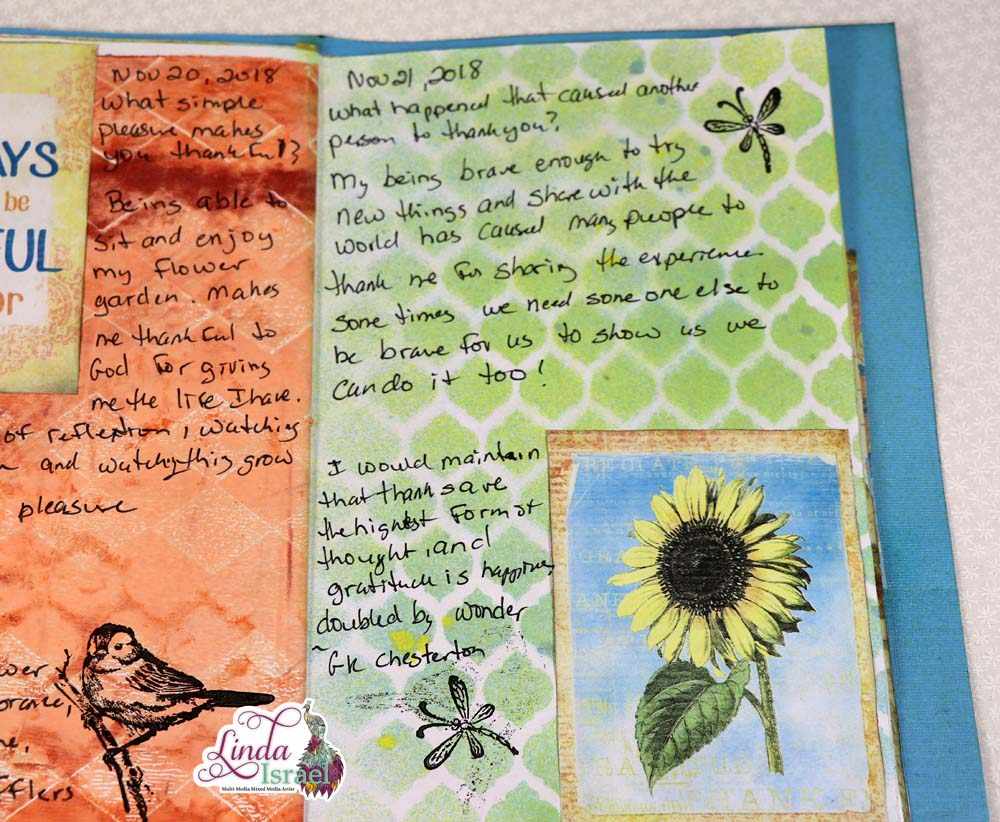 AYS
be
FUL
or
Nov 20, 2018
What simple
pleasure makes
you thankful?
Being able to
sit and enjoy
my flower
garden. Makes
me thankful to
God for giving
me the life I have.
of reflextion, watching
and watching this grow
pleasure
ower
orance,
ne,
fflers
Nov 21, 2018
What happened that caused another
person to thank you?
My being brave enough to try
new things and share with the
world has caused many people to
thank me for sharing the experience
some times we need some one else to
be brave for us to show us we
can do it too!
I would maintain
that thanks are
the highest form of
thought, and
gratitude is happiness
doubled by wonder
~ GK Chesterton
Linda
Israel
Multi Media Mixed Media Artist